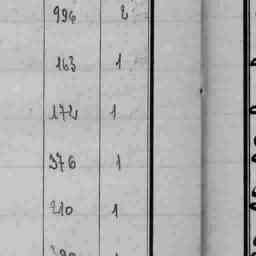 996 2
163 1
172 1
376 1
210 1